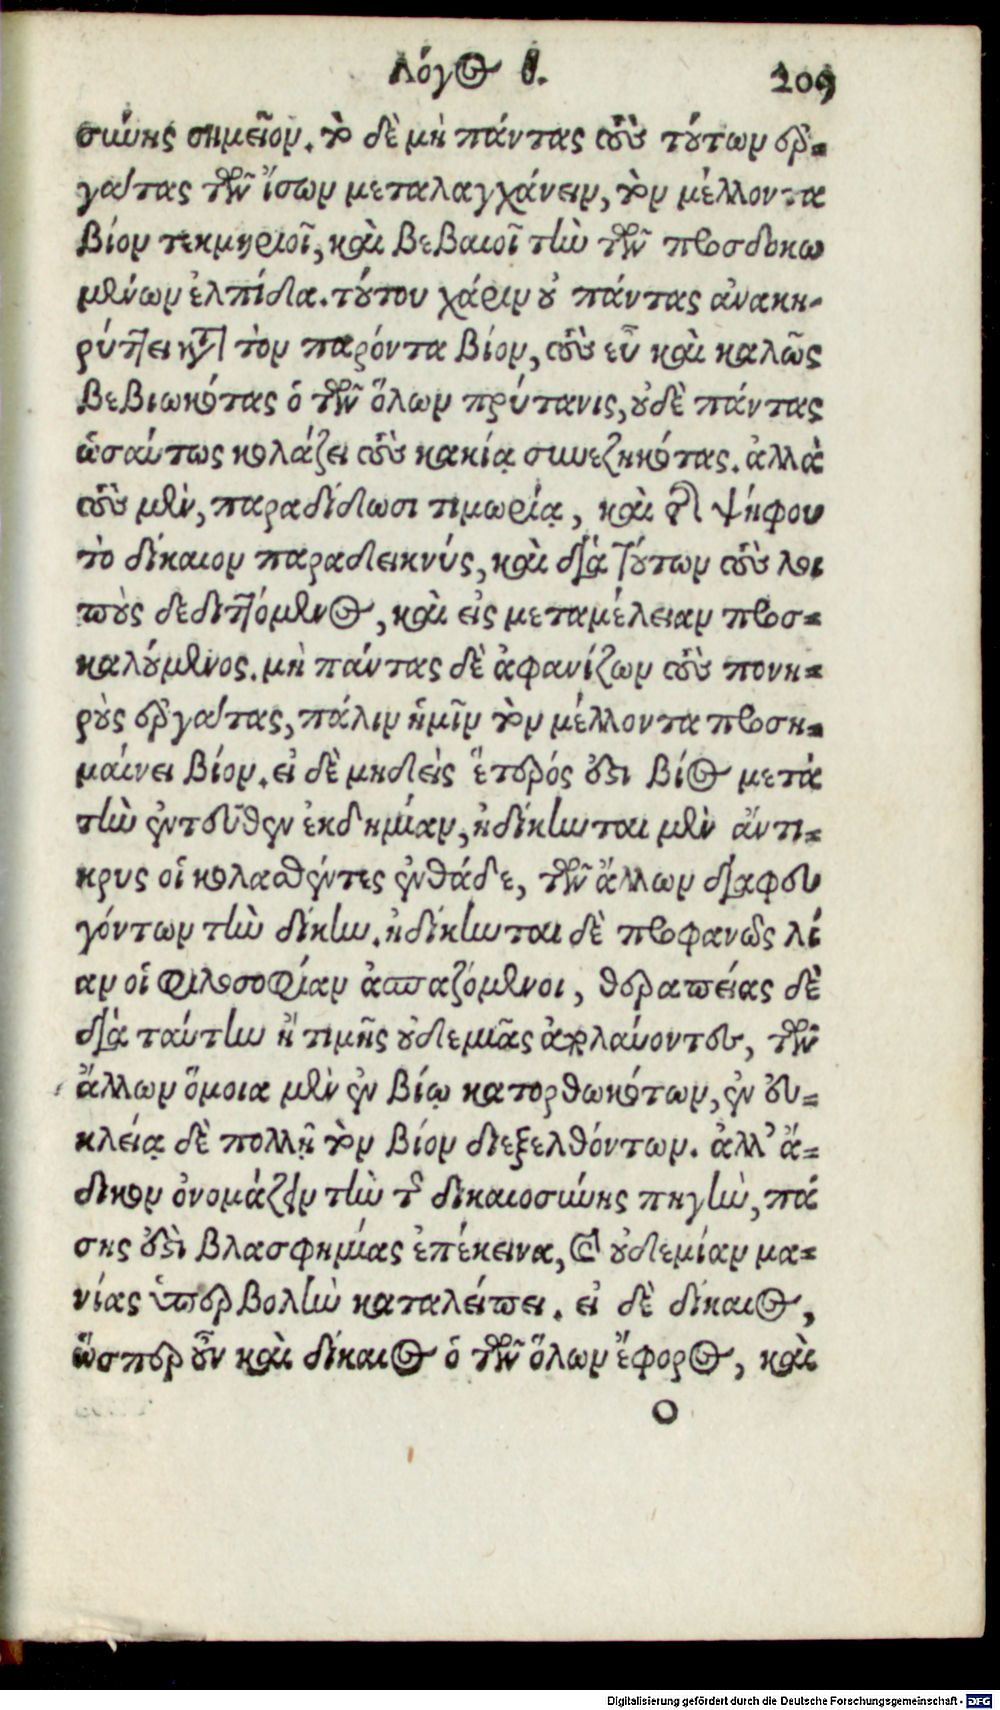 Λόγος θ. 209
σύνης σημεῖον. τὸ δὲ μὴ πάντας τοὺς τούτων ἐρ-
γάτας τῶν ἴσων μεταλαγχάνειν, τὸν μέλλοντα
βίον τεκμηριοῖ, καὶ βεβαιοῖ τὴν τῶν προσδοκω
μένων ἐλπίδα. τούτου χάριν οὐ πάντας ἀνακη-
ρύττει κατὰ τὸν παρόντα βίον, τοὺς εὖ καὶ καλῶς
βεβιωκότας ὁ τῶν ὅλων πρύτανις, οὐδὲ πάντας
ὡσαύτως κολάζει τοὺς κακίᾳ συνεζηκότας. ἀλλὰ
τοὺς μὲν, παραδίδωσι τιμωρίᾳ, καὶ τῆς ψήφου
τὸ δίκαιον παραδεικνύς, καὶ διὰ τούτων τοὺς λοι
ποὺς δεδιττόμενος, καὶ εἰς μεταμέλειαν προσ-
καλούμενος. μὴ πάντας δὲ ἀφανίζων τοὺς πονη-
ροὺς ἐργάτας, πάλιν ἡμῖν τὸν μέλλοντα προση-
μαίνει βίον. εἰ δὲ μηδεὶς ἕτερός ἐστι βίος μετὰ
τὴν ἐντεῦθεν ἐκδημίαν, ἠδίκηνται μὲν ἄντι-
κρυς οἱ κολασθέντες ἐνθάδε, τῶν ἄλλων διαφευ
γόντων τὴν δίκην. ἠδίκηνται δὲ προφανῶς λί
αν οἱ φιλοσοφίαν ἀσπαζόμενοι, θεραπείας δὲ
διὰ ταύτην ἢ τιμῆς οὐδεμιᾶς ἀπολαύοντες, τῶν
ἄλλων ὅμοια μὲν ἐν βίῳ κατορθωκότων, ἐν εὐ-
κλείᾳ δὲ πολλῇ τὸν βίον διεξελθόντων. ἀλλ' ἄ-
δικον ὀνομάζειν τὴν τῆς δικαιοσύνης πηγὴν, πά
σης ἐστὶ βλασφημίας ἐπέκεινα, καὶ οὐδεμίαν μα-
νίας ὑπερβολὴν καταλείπει. εἰ δὲ δίκαιος,
ὥσπερ οὖν καὶ δίκαιος ὁ τῶν ὅλων ἔφορος, καὶ
O
Digitalisierung gefördert durch die Deutsche Forschungsgemeinschaft - DFG